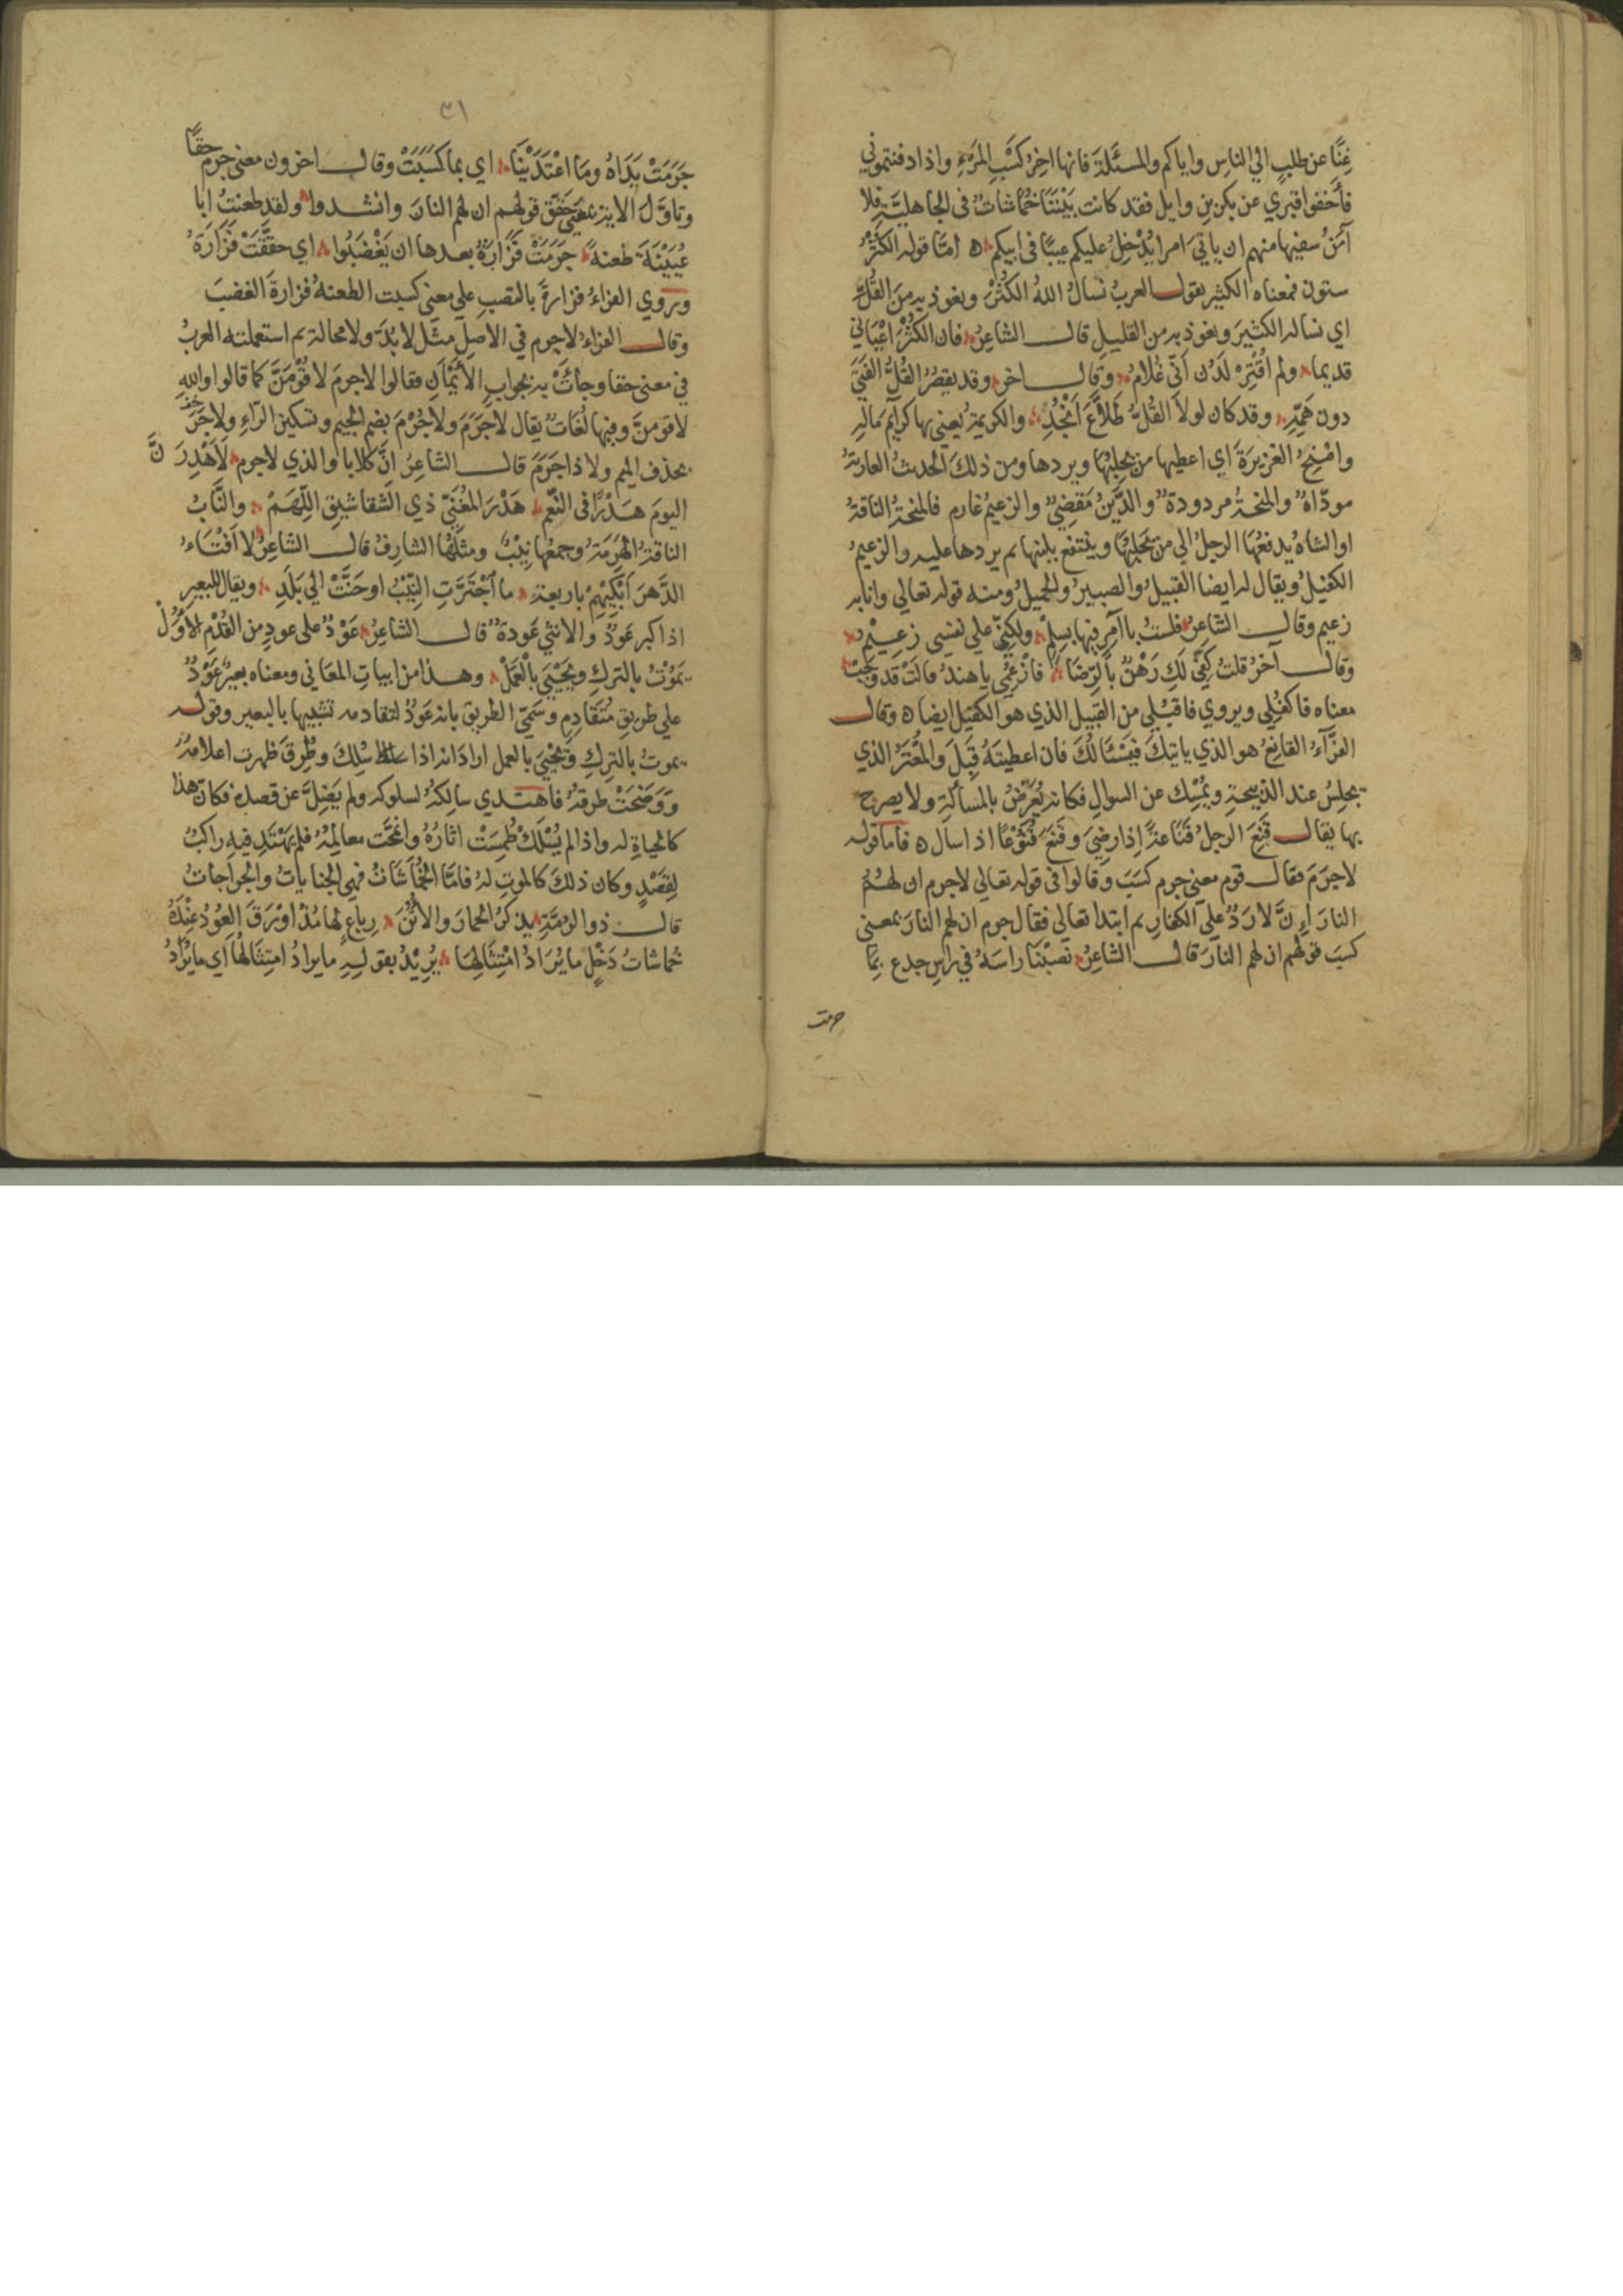 غِنًا عن طلبٍ الي الناسِ واياكم والمسئلةَ فانها اخِرُ كسْبِ المَرْءِ واذا دفنتموني
فأخفوا قبري عن بكر بنِ وايل فقد كانت بَيْنَنَا خُمَاشاتٌ في الجاهليَّةِ فلا
آمَنُ سفيها منهم ان ياتيَ امرا يُدْخِلُ عليكم عيبًا في ابيكم ه امّا قوله الكُثْرُ
ستون فمعناه الكثير يقول العربُ نسالُ اللهَ الكُثْرَ ونعوذ به مِنَ القُلِّ
اي نساله الكثيرَ ونعوذ به من القليلِ قال الشاعرُ فان الكُثْرَ اعْيَاني
قديما ولم اُقْتِرْ لَدُن اَنّي غُلامُ وقال اخر وقد يقصُرُ القُلُّ الفَتَى
دون هَمِّهِ وقد كان لولا القُلُّ طَلاَّعَ اَنْجُدِ والكريمةُ يُعنيَ بها كرايمَ مالِهِ
وامْنحُ الغزيرَةَ اي اعطيها من يحلِبُهَا ويردها ومن ذلكَ الحديثُ العاريةُ
مودّاهٌ والمنحةُ مردودةٌ والدَّينُ مَقضِيٌّ والزعيمُ غارم فالمنحةُ الناقةُ
او الشاهُ يدفعُهَا الرجلُ الي من يَحْلِبُهَا وينتفع بلبنها ثم يردها عليه والزعيمُ
الكفيلُ ويقال له ايضا القبيلُ والصبيرُ والحميلُ ومنه قوله تعالي وانا به
زعيم وقال الشاعرُ فلستُ باامرٍ فيها بسِلْمٍ ولكنّي علي نفسي زعِيْمُ
وقال آخرُ قلتُ كَفّي لَكِ رَهْنٌ بالرِّضَا فازعُمي يا هندُ قالتْ قد وَجَبْ
معناه فاكفلِي ويروي فاقبلي من القبيلِ الذي هو الكفيل ايضا ه وقال
الفرّآءُ القانِعُ هو الذي ياتيكَ فيَسْئَالُكَ فان اعطيتَهُ قِبَلَ والمُعْتَرُ الذي
يجلِسُ عند الذبيحةِ ويُمْسِك عن السوالِ فكانه يُعَرِّضُ بالمسألةِ ولا يصرح
بها يقال قَنِعَ الرجلُ قَنَاعةً إذا رضِيَ وقَنَعَ قُنُوْعًا اذا سال ه فاما قوله
لاجرَمَ فقال قوم معني جرم كسَبَ وقالوا في قوله تعالي لاجرم ان لهُمُ
النارَ اِنَّ لا رَدٌّ علي الكفارِ ثم ابتدا تعالي فقال جرم ان لهم النارَ بمعنى
كسبَ قولُهم ان لهم النارَ قال الشاعرُ نصَبْنَا راسَهُ في راسِ جذع بِمَا
جرمت
٣١
جَرَمَتْ يَدَاهُ ومَا اعْتَدَيْنَا اي بما كَسَبَتْ وقال اخرون معنى جرم حقًا
وتاوَّلَ الايةَ بمعنى حَقَّقَ قولهم ان لهم النارَ وانشدوا ولقد طعنتُ ابا
عُيَيْنَةَ طعنةً جَرَمَتْ فَزَارَةُ بعدها ان يَغْضَبُوا اي حققَتْ فَزَارَةُ
ورَوي الفرّاءُ فزارةَ بالنصبِ علي معني كسبت الطعنةُ فزارةَ الغضبَ
وقال الفرّاءُ لاجرم في الاصلِ مثل لا بُدّ ولا محالة ثم استعملته العربُ
في معنى حقا وجاَتْ به بجوابِ الأيْمَانِ فقالوا لاجرمَ لاقُوْمَنَّ كما قالوا واللهِ
لاقومنَّ وفيها لغَاتٌ يقال لاجَرَمَ ولا جُرْمَ بضم الجيم وتسكين الرّاءِ ولاجَرَ
بحذف الميم ولا ذا جَرَمَ قال الشاعرُ انّ كلابا والذي لاجرم لَاَهْدِرَنَّ
اليومَ هَدْرًا في النَّعَم هَدْرَ المُعَنّي ذي الشقاشيقِ اللِّهَمْ والنَّابُ
الناقةُ الهَرِمَةُ وجمعُها نِيْبٌ ومثلُهَا الشارِفُ قال الشاعرُ لا اَفْتَاءُ
الدَّهرَ اَبْكِيْهِمْ باربعةٍ ما اَجْتَرَّتِ النِّيْبُ او حَنَّتْ الي بَلَدِ ويقال للبعيرِ
اذا كبر عَوْدٌ والانثي عَودةٌ قال الشاعرُ عَوْدٌ على عودٍ من القُدْمِ الأُوَلْ
يَمُوْتُ بالتركِ ويُحْيَى بالْعَمَلْ وهذا من ابياتِ المعَاني ومعناه بعيرٌ عَوْدٌ
علي طريقٍ مُتَقَادِمٍ وسَمّيَ الطريقَ بانه عَوْدٌ لتقادمه تشبيها بالبعير وقوله
يموتُ بالتركِ ويُحْيَى بالعمل ارادَ انه اذا سُلِكَ وطُرِقَ ظهرت اعلامُهُ
ووَضَحَتْ طرقهُ فاهتدي سالِكُهُ لسلوكه ولم يَضِلَّ عن قصدهِ فكان هذا
كالحياةِ له واذا لم يُسْلَكْ طُمِسَتْ اثارُهُ وامَّحَت معالِمُهُ فلم يَهتدِ فيه راكبٌ
لِقَصْدٍ وكان ذلكَ كالموتِ لهُ فامّا الخُمَاشَاتُ فهي الجناياتُ والجراحاتُ
قال ذو الرُمَّةِ يذكرُ الحمارَ والاُتُنَ رِبَاعٍ لها مُذْ اوْرَقَ العُوْدُ عِنْدَهُ
خُماشاتُ ذَحْلٍ ما يُرَادُ امْتِثَالِهَا يُرِيْدُ بقولِهِ ما يرادُ امتِثَالُهَا اي ما يُرَادُ